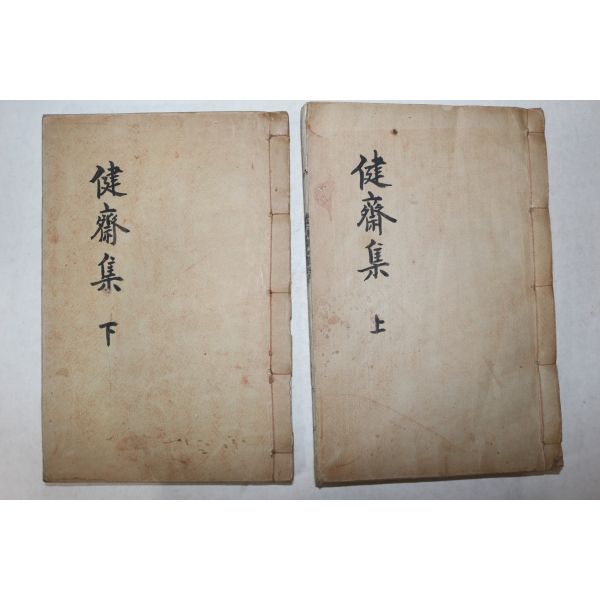 健齋集 上
健齋集 下